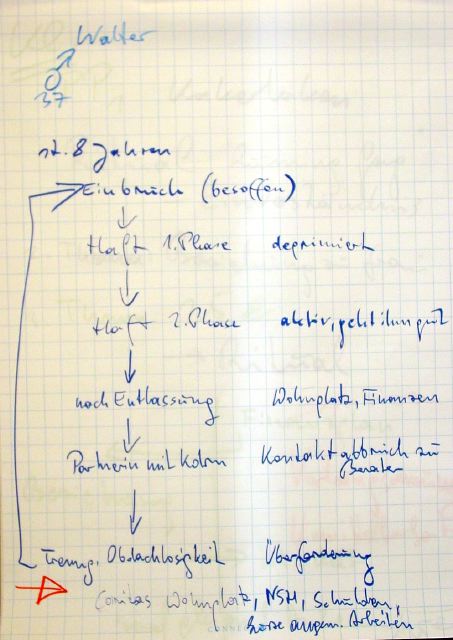 Walter
♂
37
st. 8 Jahren
Einbruch (besoffen)
Haft 1. Phase deprimiert
Haft 2. Phase aktiv, geht ihm gut
nach Entlassung Wohnplatz, Finanzen
Partnerin mit Kdern Kontaktabbruch zu
Berater
Trennung, Obdachlosigkeit Überforderung
Caritas Wohnplatz, NSH, Schulden,
Arbeiten